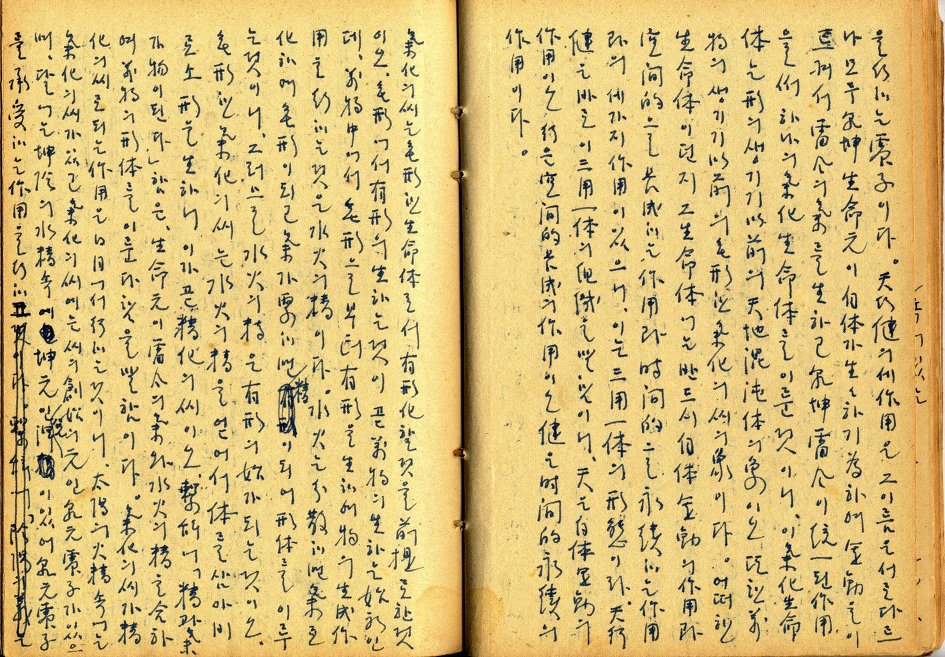 을 行하는 震子이다. 天行健의 세作用은 그 이름은 서로 다르
나 모두 乾坤 生命元이 自体가 生하기 為하여 運動을 이
르켜서 雷風의 氣를 生하고 乾坤 雷風이 統一된 作用
을 써 하나의 氣化 生命体를 이룬 것이니, 이 氣化生命
体는 形의 생기기 以前의 天地混沌体의 象이오 또한 萬
物의 생기기 以前의 無形한 氣化의 씨의 象이다. 어떠한
生命体이던지 그 生命体에는 반드시 自体運動의 作用과
空间的으로 長成하는 作用과 时间的으로 永續하는 作用
과의 세가지 作用이 있으니, 이는 三用一体의 形態이라 天行
健은 바로 이 三用一体의 組織을 말함이니, 天은 自体運動의
作用이오 行은 空间的 長成의 作用이오 健은 时间的 永續의
作用이다.
氣化의 씨는 無形한 生命体로서 有形化할 것을 前提로 한 것
이오, 無形에서 有形의 生하는 것이 곧 萬物의 生하는 始初인
데, 萬物中에서 無形으로부터 有形을 生하여 物의 生成作
用을 行하는 것은 水火의 精이다. 水火는 分散하면 氣로
化하여 無形이 되고 氣가 聚하면 精이 되어 形体를 이루
는 것이니, 그러므로 水火의 精은 有形의 始가 되는 것이오.
無形한 氣化의 씨는 水火의 精을 얻어서 体를 삼아 비
로소 形을 生하니 이가 곧 精化의 씨이오 繫辭에「精과 氣
가 物이 된다」함은, 生命元이 雷風의 氣와 水火의 精을 合하
여 萬物의 形体를 이룬다 함을 말함이다. 氣化의 씨가 精
化의 씨로 되는 作用은 日月에서 行하는 것이니 太陽의 火精 속에는
氣化의 씨가 있고 氣化의 씨에는 씨의 創始의 元인 乾元震子가 있으
며, 달에는 坤陰의 水精 속에 坤元인 이 있어 乾元震子
를 承受하는 作用을 行하